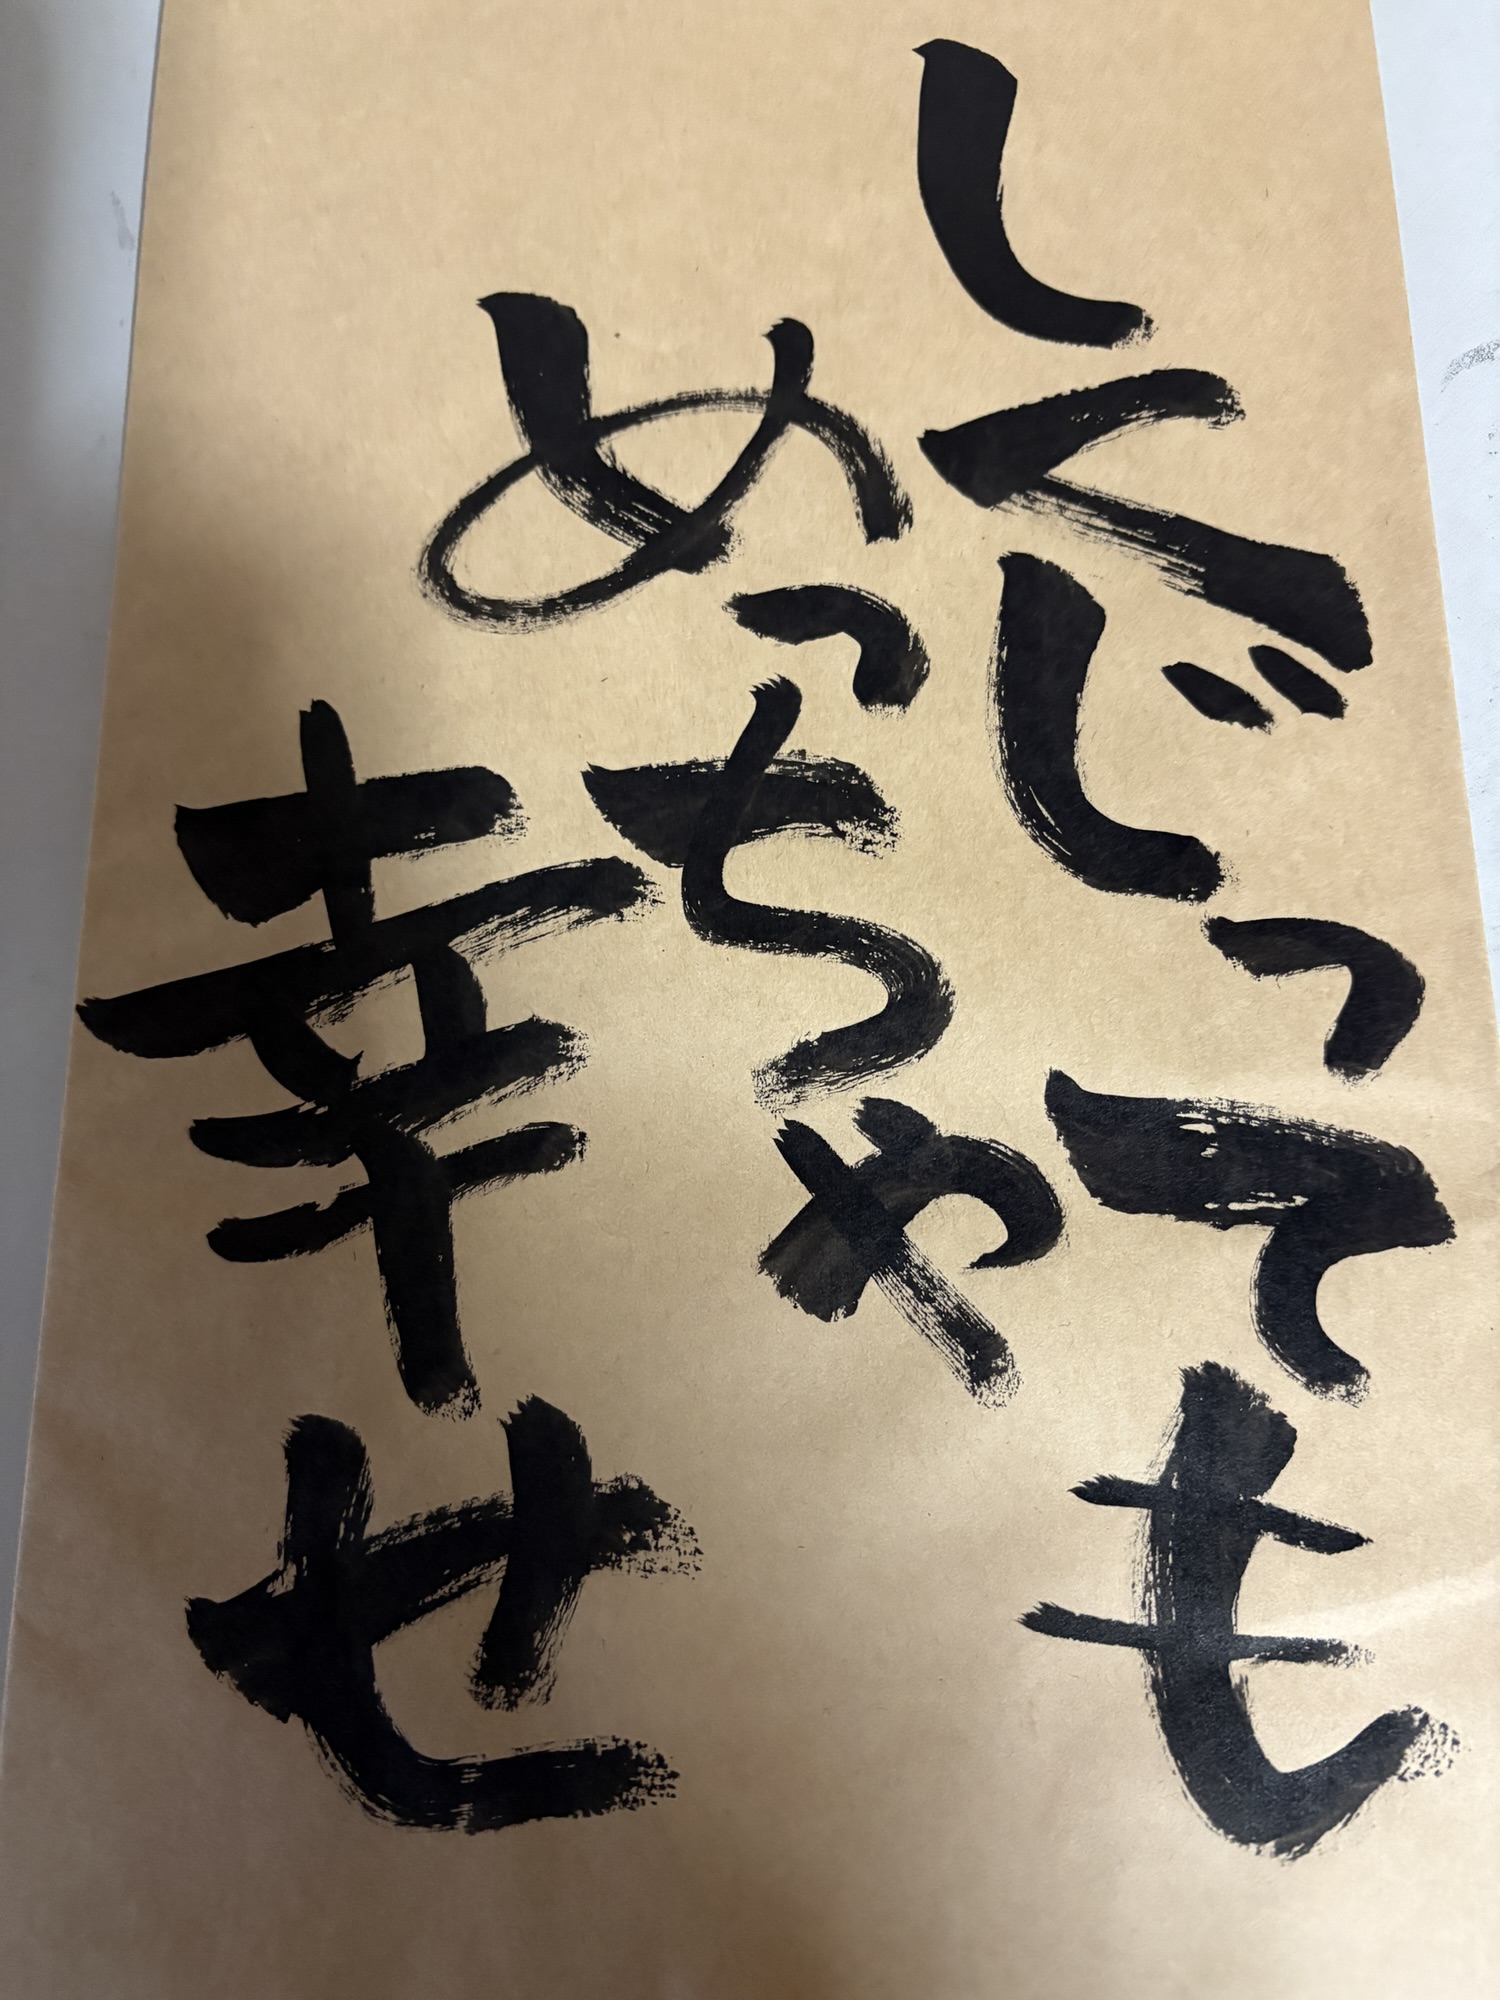 しくじっても
めっちゃ
幸せ